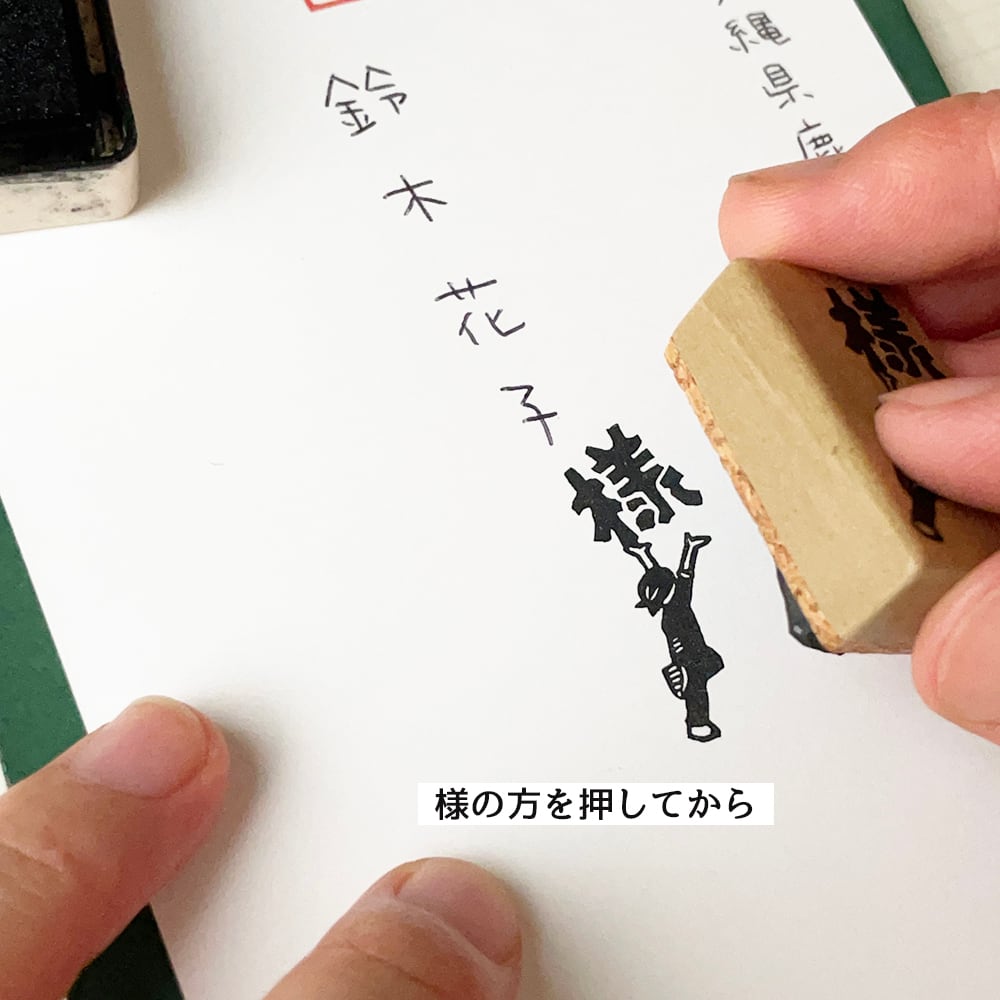 縄県
鈴木花子様
様
様の方を押してから